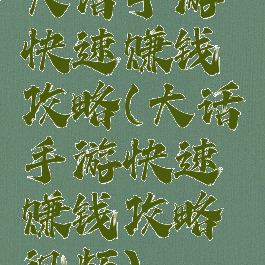 大话手游
快速赚钱
攻略(大话
手游快速
赚钱攻略
视频)